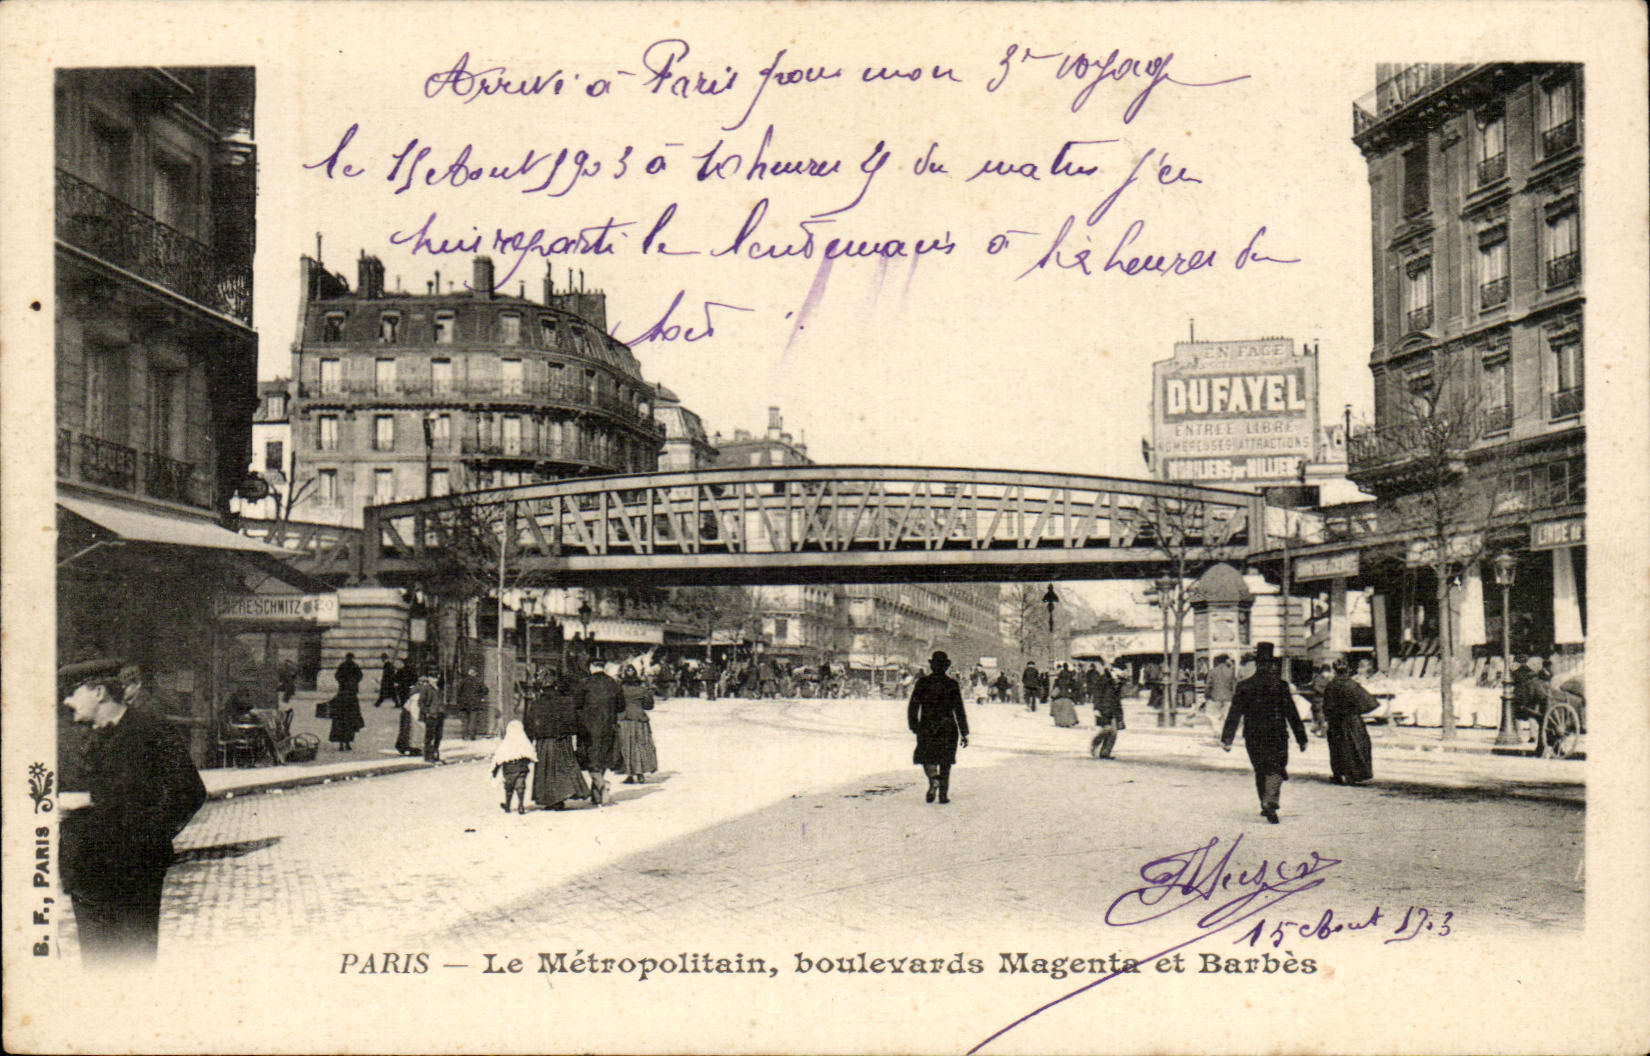 Arrivé à Paris pour mon 3e voyage
le 15 Aout 1903 à 10 heures du matin j'en
suis reparti le lendemain à heures du
soir
EN FACE
DUFAYEL
ENTRÉE LIBRE
NOMBREUSES ATTRACTIONS
MOBILIERS PAR MILLIERS
LINGE
SCHMITZ
15 Aout 1903
PARIS — Le Métropolitain, boulevards Magenta et Barbès
B. F., PARIS